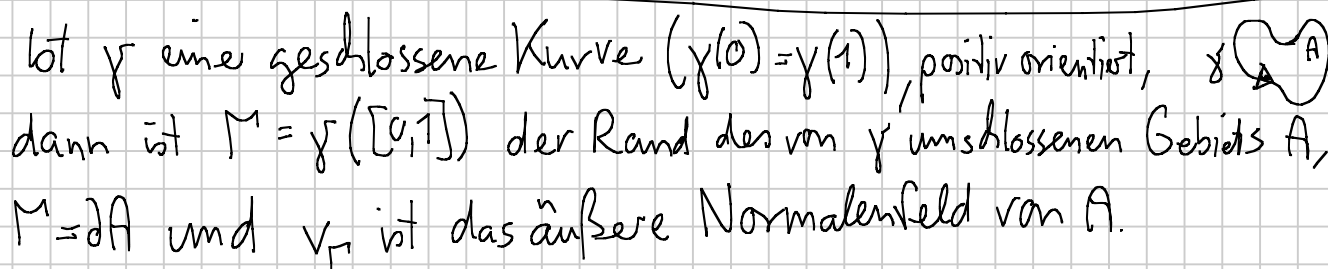 Ist γ eine geschlossene Kurve (γ(0)=γ(1)), positiv orientiert, γ A
dann ist Γ = γ([0,1]) der Rand des von γ umschlossenen Gebiets A,
Γ=∂A und ν_Γ ist das äußere Normalenfeld von A.